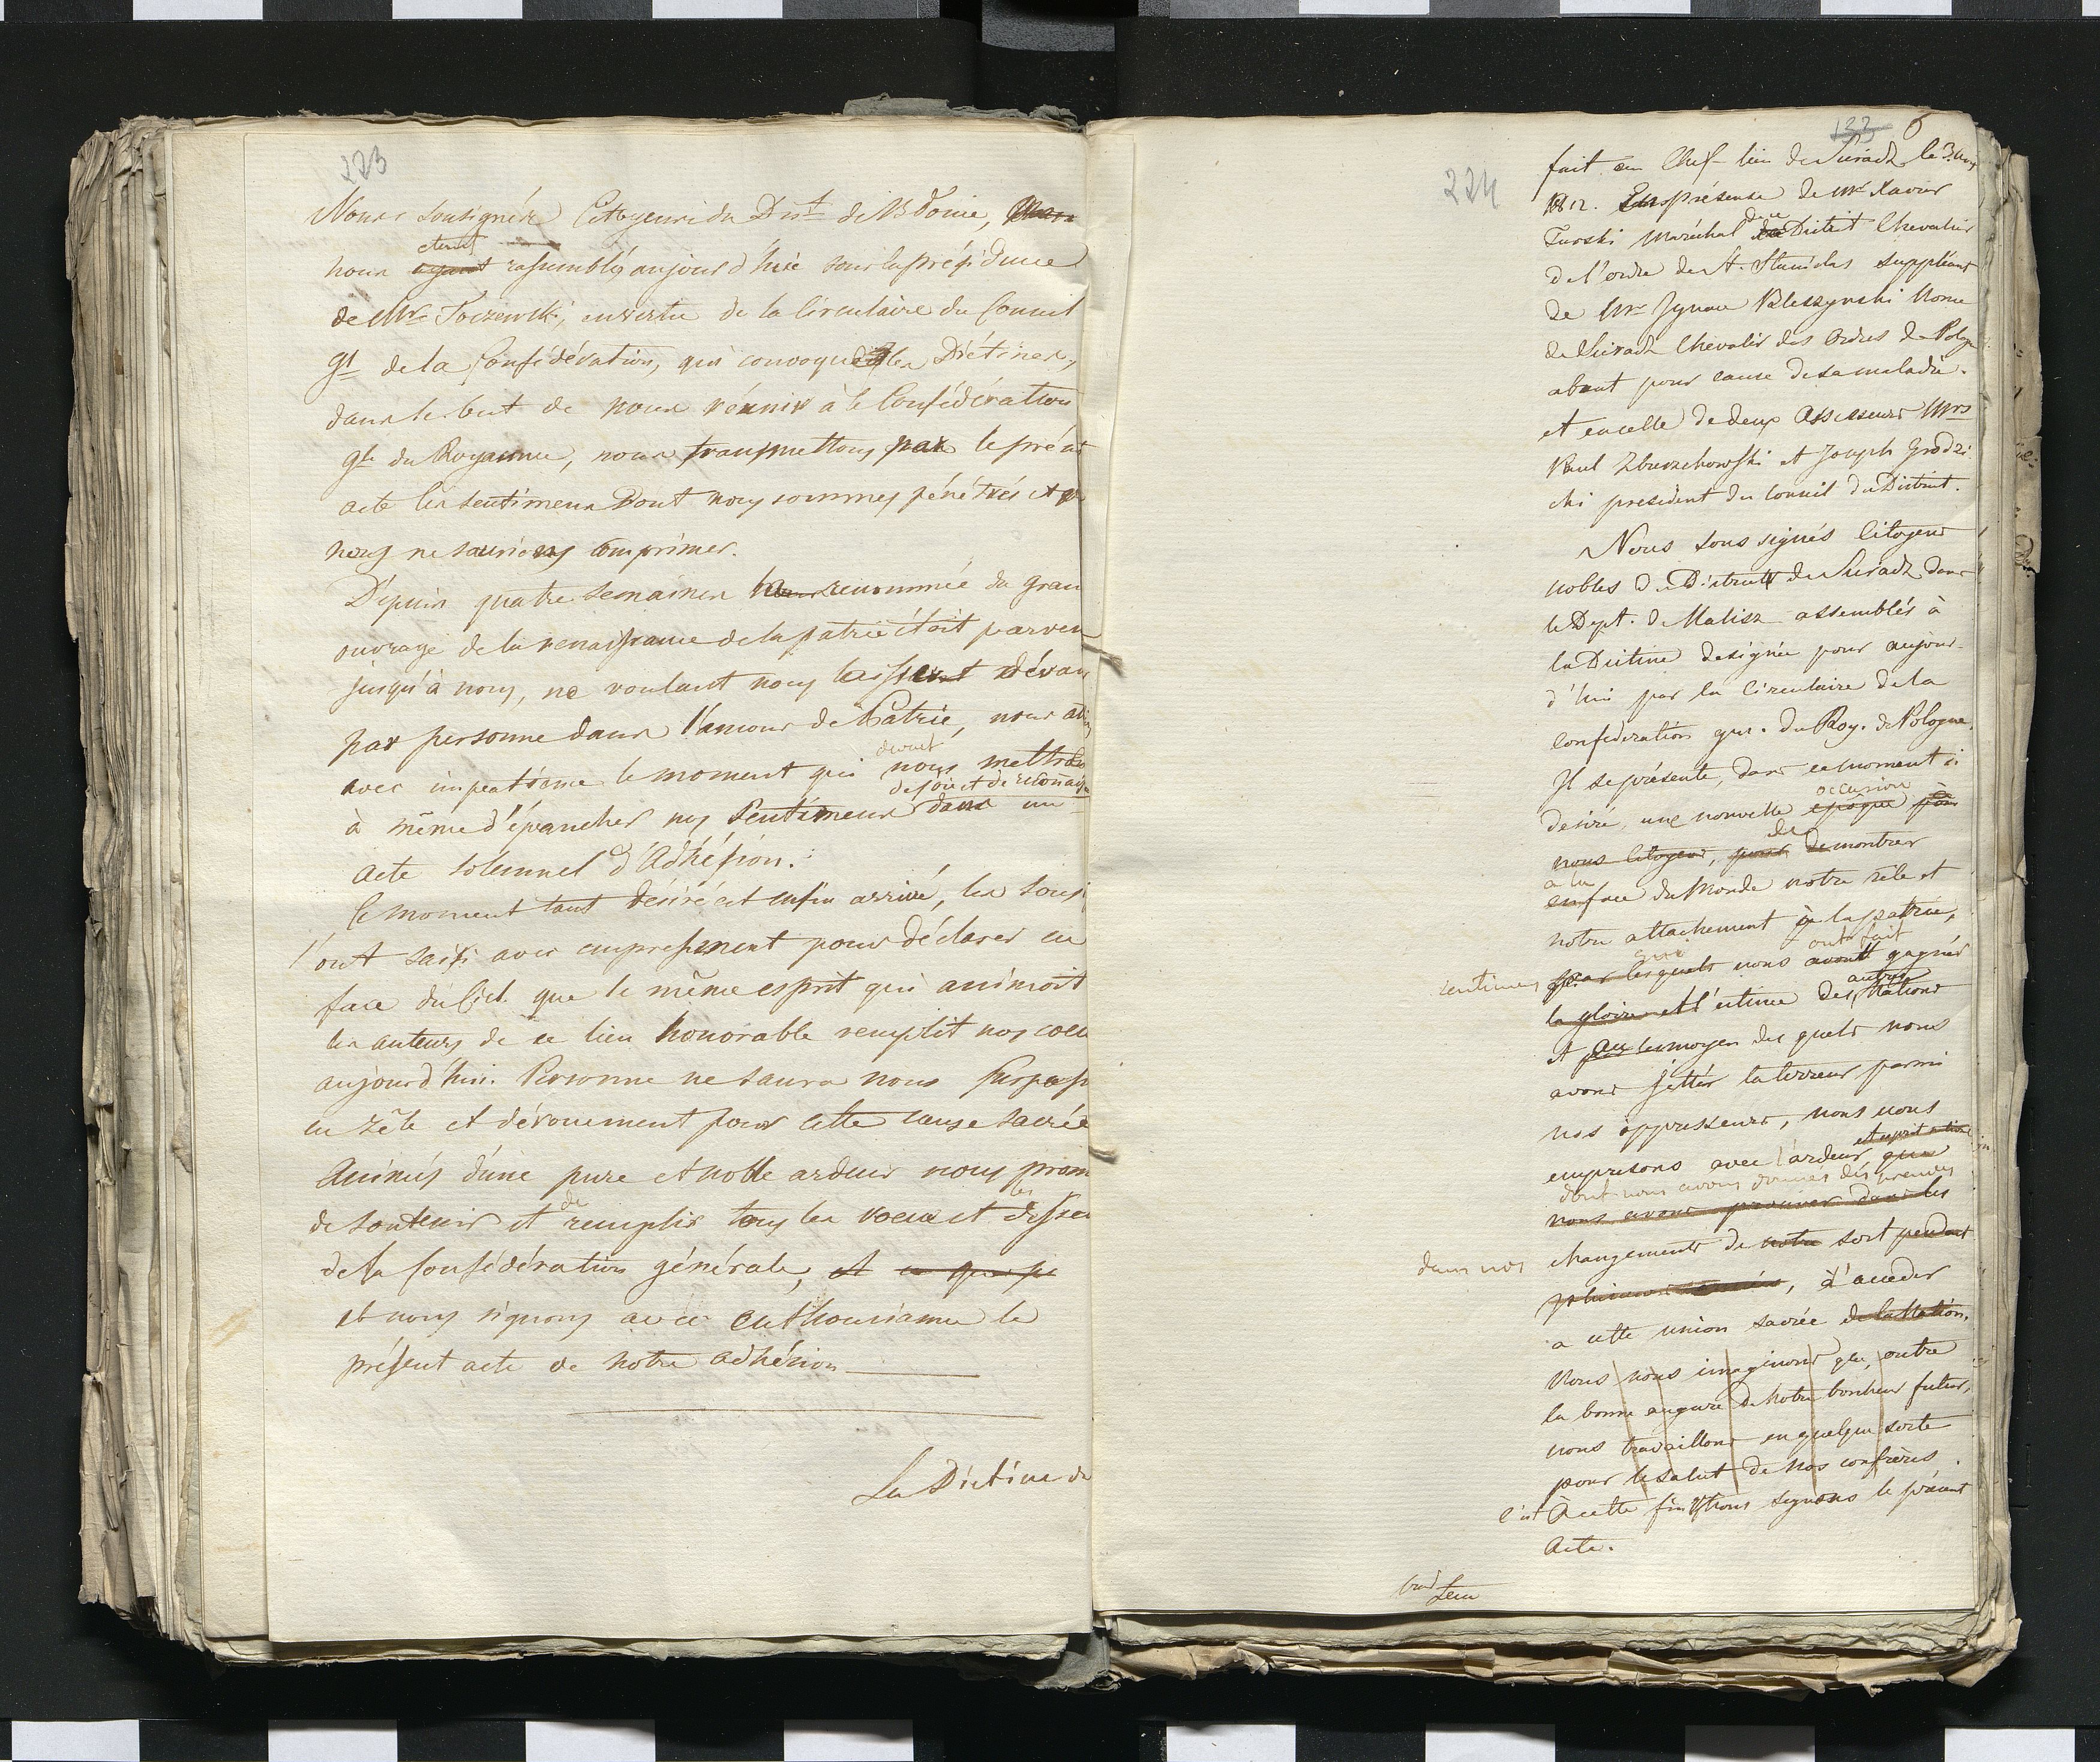 223
Nous soussignés Citoyens du Dist de Bdonie,
étant
nous ayant rassemblés aujourd'hui sous la présidence
de Mr Toczewski, en vertu de la Circulaire du Conseil
gl de la Confédération, qui convoque les Diétines,
dans le but de nous réunir à la Confédération
gle du Royaume, nous transmettons par le présent
acte les sentimens dont nous sommes pénétrés et q
nous ne saurions comprimer.
Depuis quatre semaines la renommée du gran
ouvrage de la renaissance de la patrie était parven
jusqu'à nous, ne voulant nous laisser dévan
par personne dans l'amour de Patrie, nous
devait
avec impatience le moment qui nous mettra
de joie et de reconnais
à même d'épancher nos sentimens dans un
acte solemnel d'Adhésion.
Ce moment tant désiré est enfin arrivé, les sous
l'ont saisi avec empressement pour déclarer en
face du Ciel que le même esprit qui animoit
les auteurs de ce lien honorable remplit nos coeu
aujourd'hui. Personne ne saura nous surpass
en zêle et dévouement pour cette cause sacrée
Animés d'une pure et noble ardeur nous prom
de les
de soutenir et remplir tous les voeux et dessei
de la Confédération générale, et
et nous signons avec enthousiasme le
présent acte de notre adhésion
La Diétine de
133 6
224
fait au Chef-lieu de Sieradz le 3. Aout
1812. En présence de Mr Xavier
du
Turski Maréchal de District Chevalier
de l'ordre de St. Stanislas suppléant
de Mr Ignace Bleszynski Nonce
de Sieradz Chevalier des Ordres de Polog
absent pour cause de sa maladie.
et en celle de deux Assesseurs Mrs
Paul Zbierzchowski et Joseph Grodzi
cki president du Conseil du District.
Nous sous signés Citoyens
nobles du District de Sieradz dans
le Dept. de Kalisz assemblés à
la Diétine designée pour aujour-
d'hui par la Circulaire de la
Confederation gen. du Roy. de Pologne.
Il se présente, dans ce moment si
occasion
desiré, une nouvelle epôque pour
de
nous Citoyens, pour demontrer
a la
en face du Monde notre zêle et
notre attachement à la patrie,
qui ont fait
sentimens par lesquels nous avons gagner
autres
la gloire et l'estime des Nations
et par le moyen des quels nous
avons jettés la terreur parmi
nos oppresseurs, nous nous
empressons avec l'ardeur que
dont nous avons donnés des preuves
nous avons prouver dans les
dans nos changements de notre sort pendant
plusieurs années, d'acceder
a cette union sacrée de la Nation.
Nous nous imaginons que, outre
la bonne augure de notre bonheur futur,
nous travaillons en quelque sorte
pour le salut de nos confrères.
c'est À cette fin Nous signons le présent
Acte.